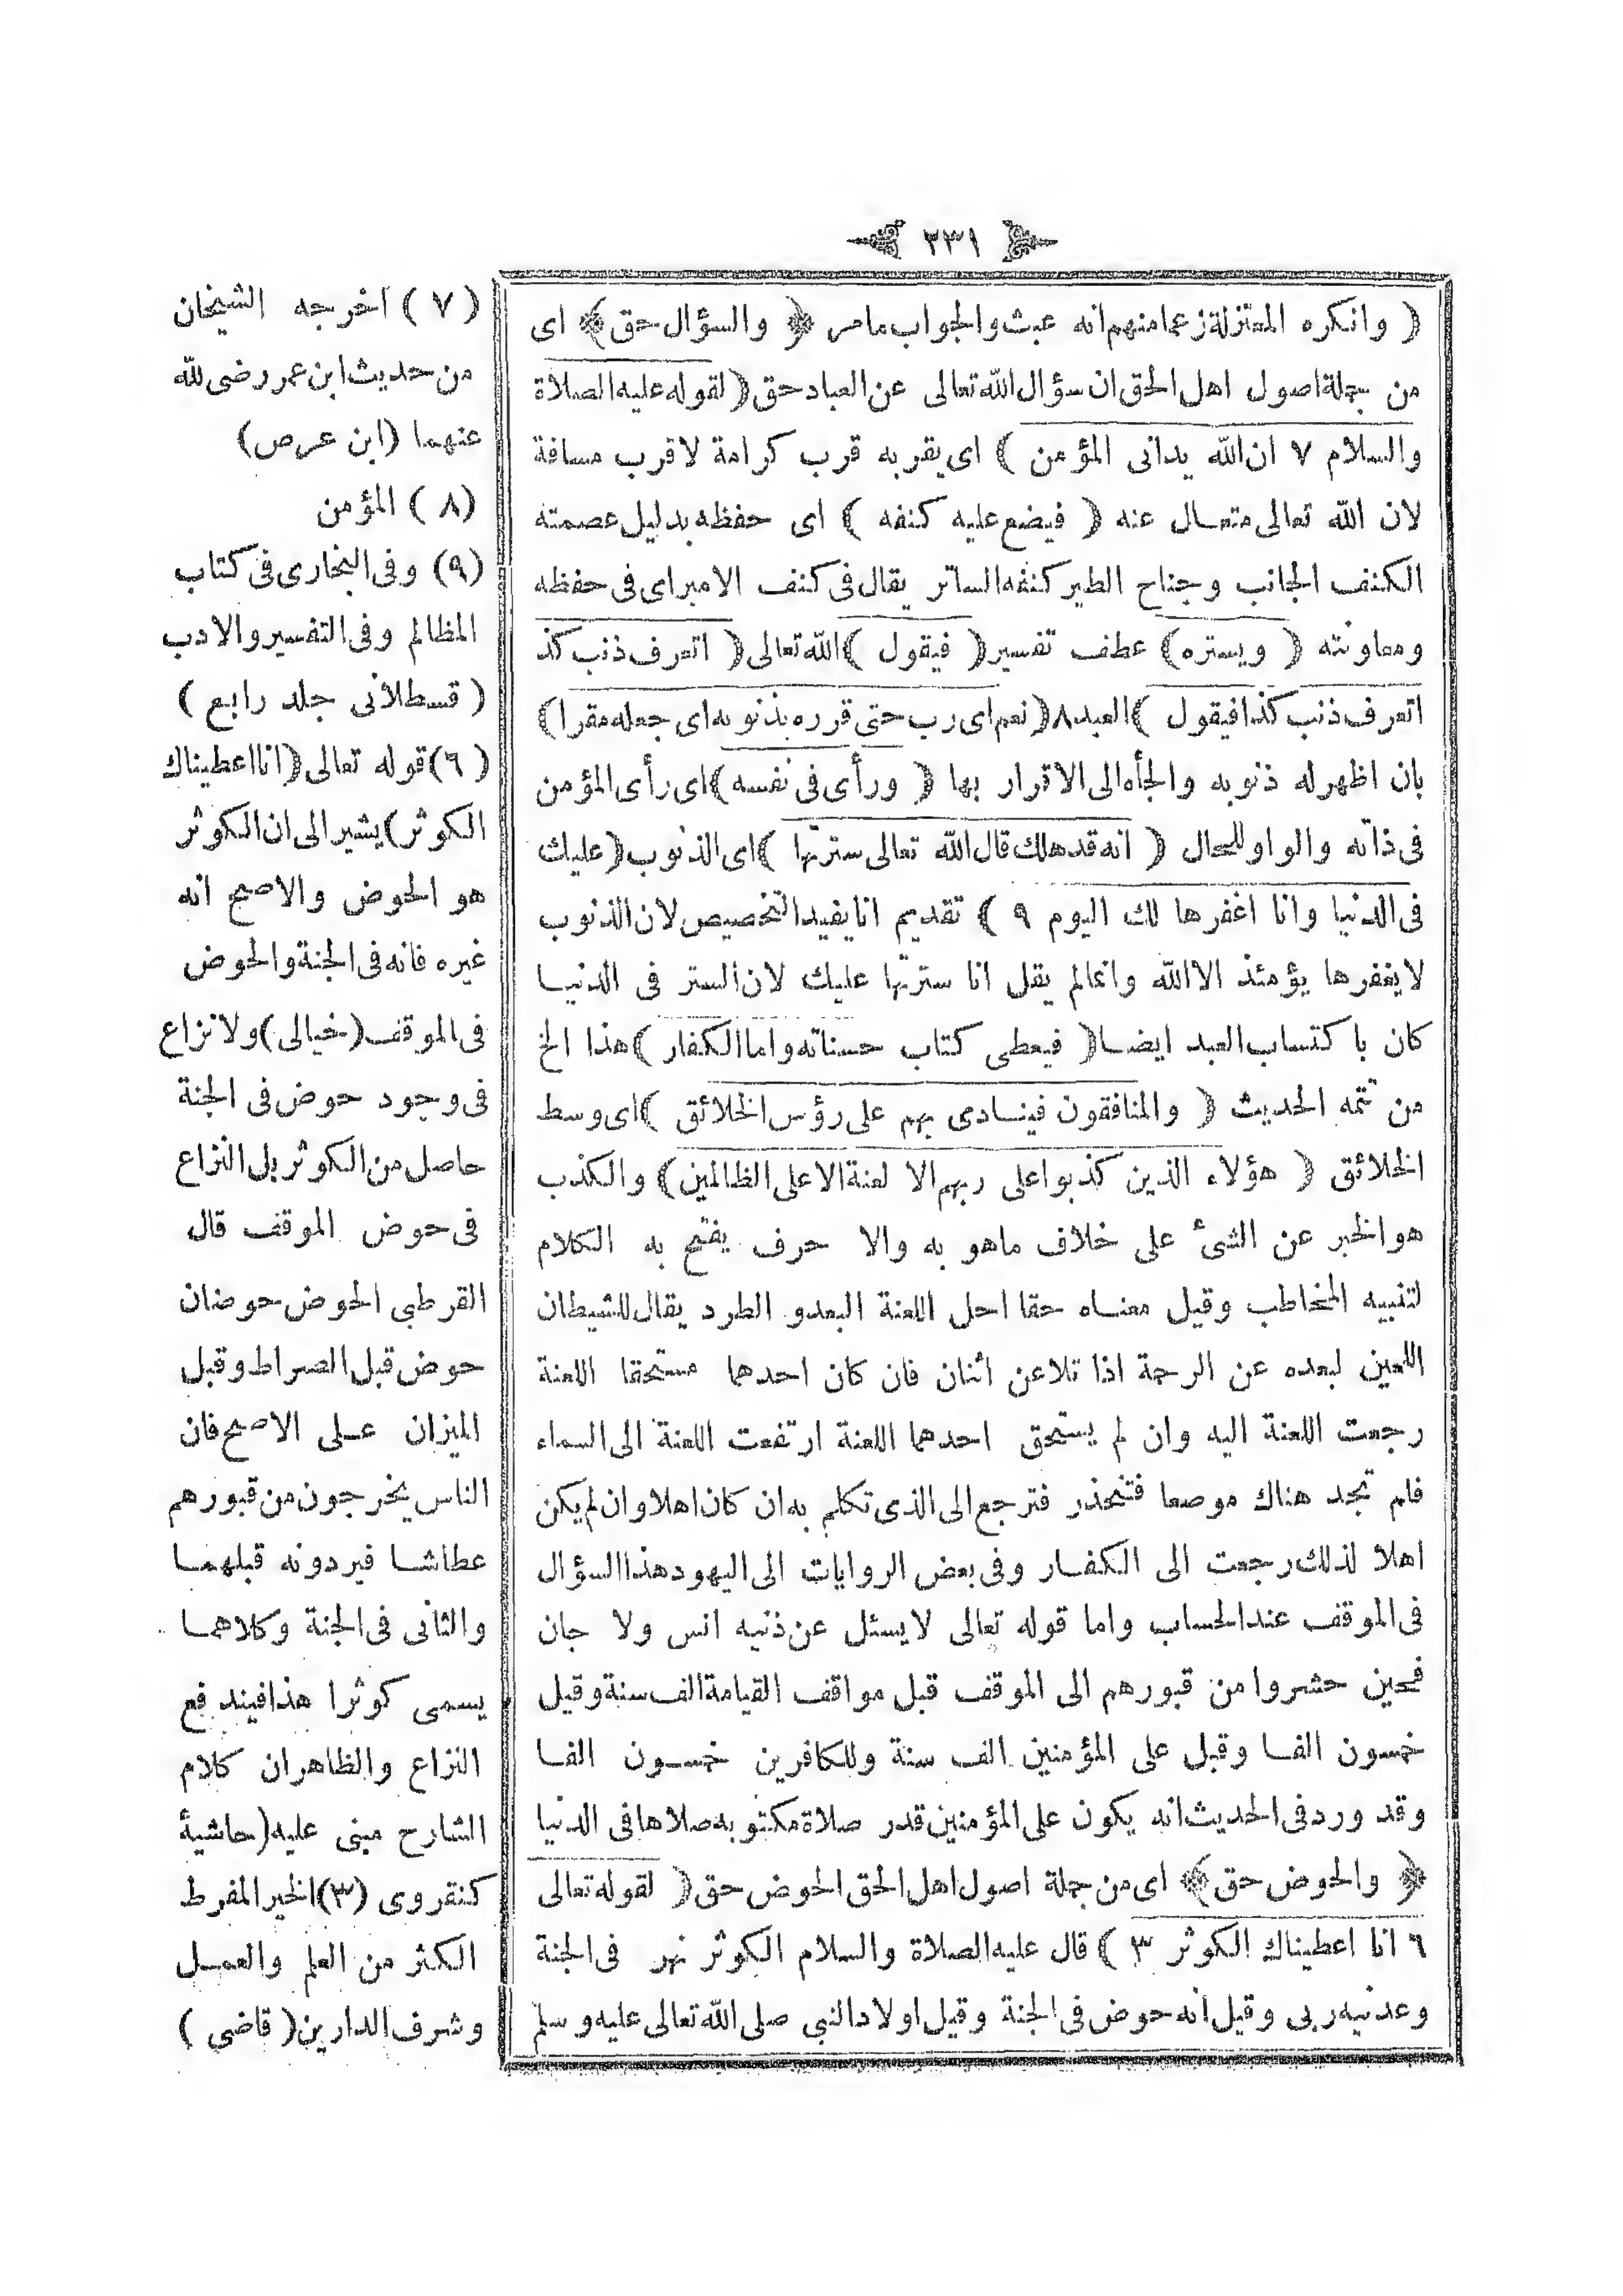 ٢٣١
( وانكره المعتزلة زعما منهم انه عبث والجواب مامر ﴿ والسؤال حق ﴾ اى
من جملة اصول اهل الحق ان سؤال الله تعالى عن العباد حق ( لقوله عليه الصلاة
والسلام ٧ ان الله يدانى المؤمن ) اى يقربه قرب كرامة لا قرب مسافة
لان الله تعالى متعال عنه ( فيضع عليه كنفه ) اى حفظه بدليل عصمته
الكنف الجانب وجناح الطير كنفه الساتر يقال فى كنف الامير اى فى حفظه
ومعاونته ( ويستره ) عطف تفسير ( فيقول ) الله تعالى ( اتعرف ذنب كذ
اتعرف ذنب كذا فيقول ) العبد ٨ ( نعم اى رب حتى قرره بذنوبه اى جعله مقرا )
بان اظهر له ذنوبه والجأه الى الاقرار بها ( ورأى فى نفسه ) اى رأى المؤمن
فى ذاته والواو للحال ( انه قد هلك قال الله تعالى سترتها ) اى الذنوب ( عليك
فى الدنيا وانا اغفرها لك اليوم ٩ ) تقديم انا يفيد التخصيص لان الذنوب
لا يغفرها يؤمئذ الا الله وانما لم يقل انا سترتها عليك لان الستر فى الدنيا
كان باكتساب العبد ايضا ( فيعطى كتاب حسناته واما الكفار ) هذا الخ
من تتمه الحديث ( والمنافقون فينادى بهم على رؤس الخلائق ) اى وسط
الخلائق ( هؤلاء الذين كذبوا على ربهم الا لعنة الا على الظالمين ) والكذب
هو الخبر عن الشئ على خلاف ماهو به والا حرف يفتح به الكلام
لتنبيه المخاطب وقيل معناه حقا احل اللعنة البعدو الطرد يقال للشيطان
اللعين لبعده عن الرحمة اذا تلاعن اثنان فان كان احدهما مستحقا اللعنة
رجعت اللعنة اليه وان لم يستحق احدهما اللعنة ارتفعت اللعنة الى السماء
فلم تجد هناك موصعا فتنحذر فترجع الى الذى تكلم به ان كان اهلا وان لم يكن
اهلا لذلك رجعت الى الكفار وفى بعض الروايات الى اليهود هذا السؤال
فى الموقف عند الحساب واما قوله تعالى لا يسئل عن ذنبه انس ولا جان
فحين حشروا من قبورهم الى الموقف قبل مواقف القيامة الف سنة وقيل
خمسون الفا وقبل على المؤمنين الف سنة وللكافرين خمسون الفا
وقد ورد فى الحديث انه يكون على المؤمنين قدر صلاة مكتوبه صلاها فى الدنيا
﴿ والحوض حق ﴾ اى من جملة اصول اهل الحق الحوض حق ( لقوله تعالى
٦ انا اعطيناك الكوثر ٣ ) قال عليه الصلاة والسلام الكوثر نهر فى الجنة
وعدنيه ربى وقيل انه حوض فى الجنة وقيل اولاد النبي صلى الله تعالى عليه وسلم
( ٧ ) اخرجه الشيخان
من حديث ابن عمر رضى لله
عنهما (ابن عرص)
( ٨ ) المؤمن
(٩) وفى البخارى فى كتاب
المظالم وفى التفسير والادب
( قسطلانى جلد رابع )
(٦) قوله تعالى ( انا اعطيناك
الكوثر ) يشير الى ان الكوثر
هو الحوض والاصح انه
غيره فانه فى الجنة والحوض
فى الموقف (خيالى) ولا نزاع
فى وجود حوض فى الجنة
حاصل من الكوثر بل النزاع
فى حوض الموقف قال
القرطبى الحوض حوضان
حوض قبل الصراط وقبل
الميزان على الاصح فان
الناس يخرجون من قبورهم
عطاشا فيردونه قبلهما
والثانى فى الجنة وكلاهما
يسمى كوثرا هذا فيندفع
النزاع والظاهران كلام
الشارح مبنى عليه (حاشية
كنقروى (٣) الخير المفرط
الكثر من العلم والعمل
وشرف الدارين ( قاضى )